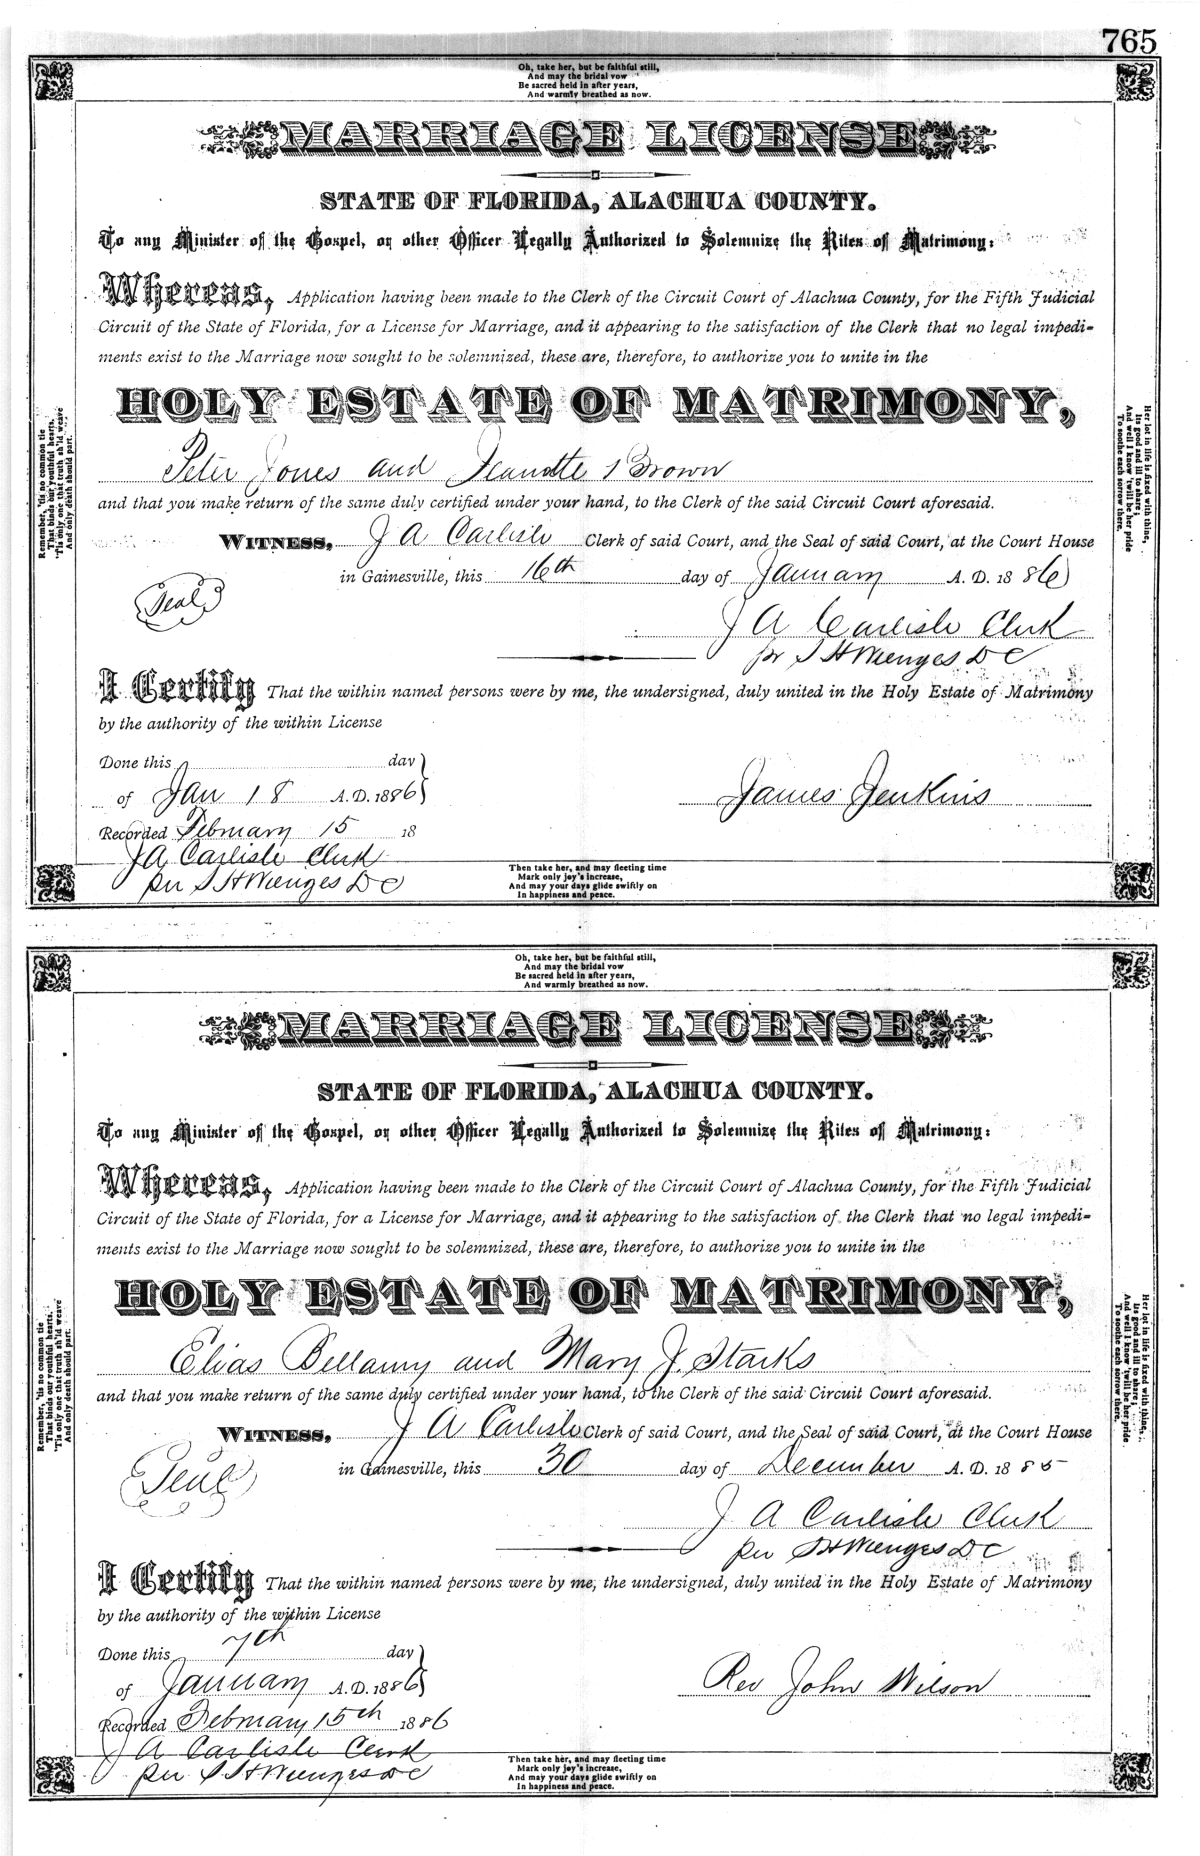 765
Oh, take her, but be faithful still,
And may the bridal vow
Be sacred held in after years,
And warmly breathed as now.
MARRIAGE LICENSE
STATE OF FLORIDA, ALACHUA COUNTY.
To any Minister of the Gospel, or other Officer Legally Authorized to Solemnize the Rites of Matrimony:
Whereas, Application having been made to the Clerk of the Circuit Court of Alachua County, for the Fifth Judicial
Circuit of the State of Florida, for a License for Marriage, and it appearing to the satisfaction of the Clerk that no legal impedi-
ments exist to the Marriage now sought to be solemnized, these are, therefore, to authorize you to unite in the
HOLY ESTATE OF MATRIMONY,
Peter Jones and Jeanette Brown
and that you make return of the same duly certified under your hand, to the Clerk of the said Circuit Court aforesaid.
WITNESS, J A Carlisle Clerk of said Court, and the Seal of said Court, at the Court House
in Gainesville, this 16th day of January A. D. 1886
Seal
J A Carlisle Clerk
pr S H Wienges DC
I Certify That the within named persons were by me, the undersigned, duly united in the Holy Estate of Matrimony
by the authority of the within License
Done this day
of Jan 18 A.D. 1886
James Jenkins
Recorded February 15 18
J A Carlisle Clerk
per S H Wienges DC
Remember, 'tis no common tie
That binds our youthful hearts,
'Tis only one that truth sh'ld weave
And only death should part.
Her lot in life is fixed with thine,
Its good and ill to share;
And well I know 'twill be her pride
To soothe each sorrow there.
Then take her, and may fleeting time
Mark only joy's increase,
And may your days glide swiftly on
In happiness and peace.
Oh, take her, but be faithful still,
And may the bridal vow
Be sacred held in after years,
And warmly breathed as now.
MARRIAGE LICENSE
STATE OF FLORIDA, ALACHUA COUNTY.
To any Minister of the Gospel, or other Officer Legally Authorized to Solemnize the Rites of Matrimony:
Whereas, Application having been made to the Clerk of the Circuit Court of Alachua County, for the Fifth Judicial
Circuit of the State of Florida, for a License for Marriage, and it appearing to the satisfaction of the Clerk that no legal impedi-
ments exist to the Marriage now sought to be solemnized, these are, therefore, to authorize you to unite in the
HOLY ESTATE OF MATRIMONY,
Elias Bellamy and Mary J. Starks
and that you make return of the same duly certified under your hand, to the Clerk of the said Circuit Court aforesaid.
WITNESS, J A Carlisle Clerk of said Court, and the Seal of said Court, at the Court House
in Gainesville, this 30 day of December A. D. 1885
Seal
J A Carlisle Clerk
per S H Wienges DC
I Certify That the within named persons were by me, the undersigned, duly united in the Holy Estate of Matrimony
by the authority of the within License
Done this 7th day
of January A.D. 1886
Rev John Wilson
Recorded February 15th 1886
J A Carlisle Clerk
per S H Wienges DC
Remember, 'tis no common tie
That binds our youthful hearts,
'Tis only one that truth sh'ld weave
And only death should part.
Her lot in life is fixed with thine,
Its good and ill to share;
And well I know 'twill be her pride
To soothe each sorrow there.
Then take her, and may fleeting time
Mark only joy's increase,
And may your days glide swiftly on
In happiness and peace.